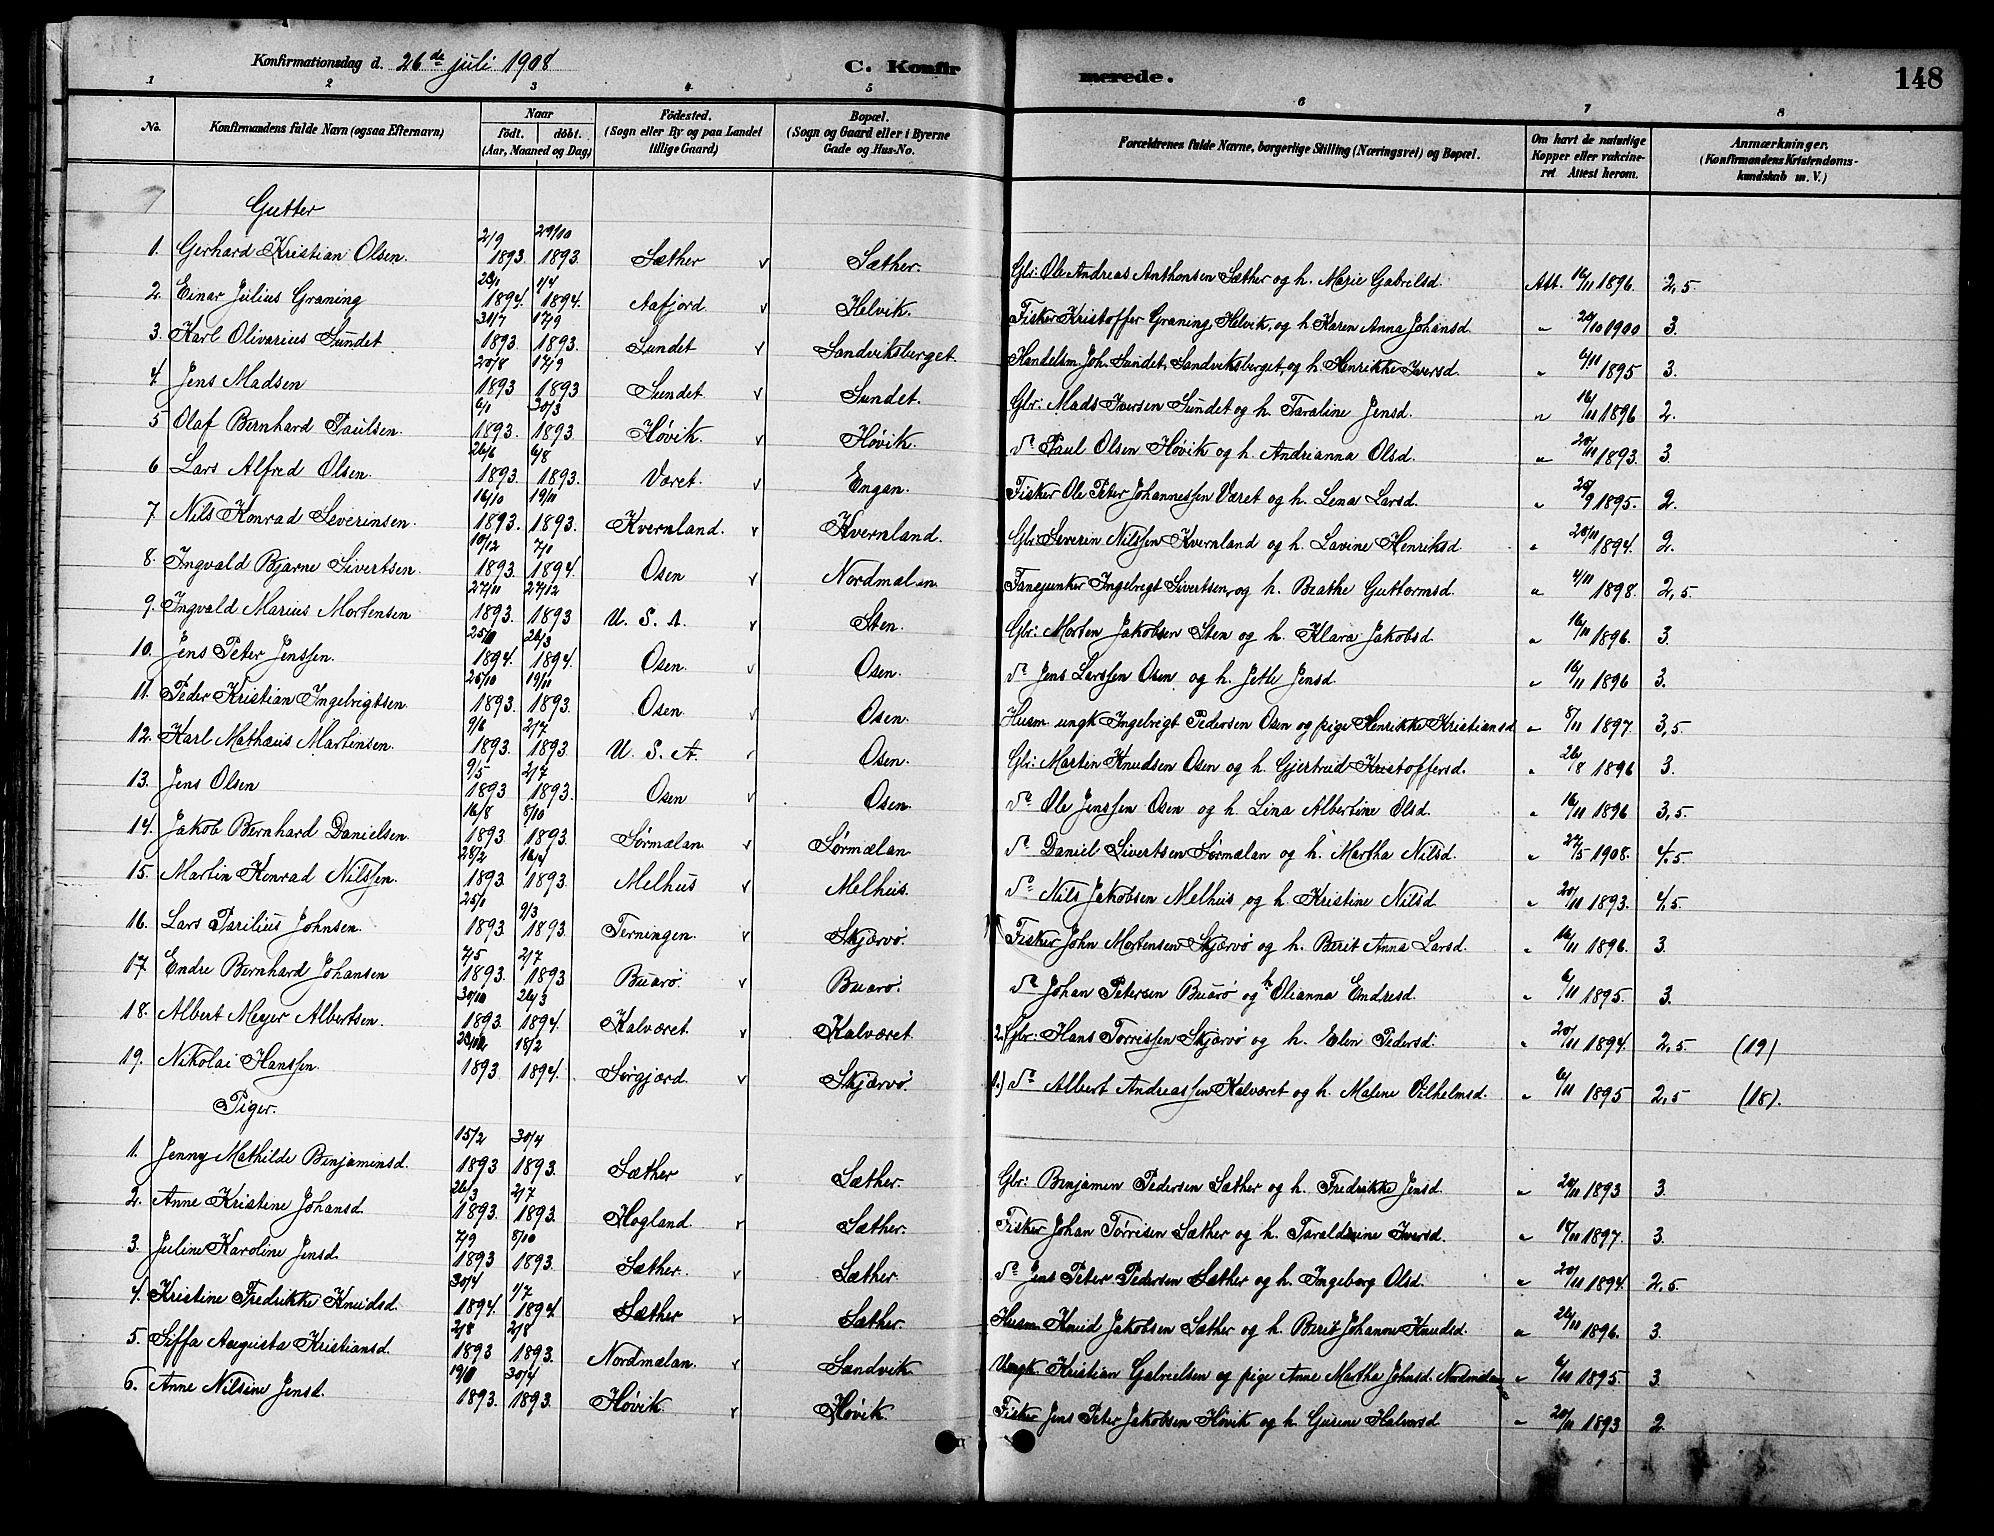 Konfirmationsdag d. 26de juli 1908
C. Konfirmerede.
148
1 2 3 4 5 6 7 8
No. Konfirmandens fulde Navn (ogsaa Efternavn) Naar födt. döbt. (Aar, Maaned og Dag) Födested. (Sogn eller By og paa Landet tillige Gaard) Bopæl. (Sogn og Gaard eller i Byerne Gade og Hus-No. Forældrenes fulde Navne, borgerlige Stilling (Næringsvei) og Bopæl. Om havt de naturlige Kopper eller vakcineret Attest herom. Anmærkninger. (Konfirmandens Kristendomskundskab m. V.)
Gutter
1. Gerhard Kristian Olsen. 2/9 1893. 29/10 1893. Sæther v Sæther. Gbr: Ole Andreas Anthonsen Sæther og h. Marie Gabrilsd. Att. 16/11 1896. 2,5.
2. Einar Julius Graning 1894. 1/4 1894. Aafjord v Helvik. Fisker Kristoffer Graning, Helvik, og h Karen Anna Johansd. " 1900 3.
3. Karl Olivarius Sundet 31/7 1893. 17/9 1893. Sundet v Sandviksberget. Handelsm Joh. Sundet, Sandviksberget, og h. Henrikke Iversd. " 6/11 1895 3.
4. Jens Madsen 20/8 1893 17/9 1893 Sundet v Sundet. Gbr: Mads Iversen Sundet og h. Taraline Jensd. " 16/11 1896 2.
5 Olaf Bernhard Paulsen. 6/1 1893. 30/3 1893. Høvik. v Høvik. do Paul Olsen Høvik og h. Andrianna Olsd. " 20/11 1893. 3.
6 Lars Alfred Olsen. 26/6 1893. 6/8 1893. Været. v Engan. Fisker Ole Peter Johannessen Været og h. Lena Larsd. " 1895. 2.
7 Nils Konrad Severinsen. 16/10 1893. 19/11 1893. Kvernland. v Kvernland. Gbr: Severin Nilssen Kvernland og h. Lavine Henriksd " 20/11 1894. 2.
8. Ingvald Bjarne Sivertsen. 10/12 1893. 7/1 1894. Osen v Nordmælan. Fanejunker Ingebrigt Sivertsen, og h. Beathe Guttormsd. " 1898. 2,5.
9. Ingvald Marius Mortensen 27/11 1893. 27/12 1893 U. S. A. v Sten. Gbr: Morten Jakobsen Sten og h. Klara Jakobsd. " 16/11 1896. 3.
10. Jens Peter Jenssen. 1894. 26/3 1894. Osen. v Osen. do Jens Larssen Osen og h. Jette Jensd. " 16/11 1896 3.
11. Peder Kristian Ingebrigtsen. 25/10 1893. 19/11 1893. Osen v Osen. Husm ungk Ingebrigt Pedersen Osen og pige Henrikke Kristiansd " 8/11 1897. 3,5.
12. Karl Mathæus Martinsen. 9/6 1893 2/7 1893 U. S. A. v Osen. Gbr: Martin Knudsen Osen og h. Gjertrud Kristoffersd. " 26/8 1896 3.
13. Jens Olsen 9/5 1893 2/7 1893. Osen v Osen. do Ole Jenssen Osen og h. Lina Albertine Olsd. " 16/11 1896 3,5.
14. Jakob Bernhard Danielsen. 16/8 1893 8/10 1893. Sørmælan. v Sørmælan do Daniel Sivertsen Sørmælan og h. Martha Nilsd. " 27/5 1908. 4,5.
15. Martin Konrad Nilssen. 28/2 1893 16/4 1893. Melhus v Melhus. do Nils Jakobsen Melhus, og h. Kristine Nilsd. " 20/11 1893. 4,5.
16. Lars Parilius Johnsen. 25/1 1893 9/3 1893. Terningen. v Skjærvø. Fisker John Mortensen Skjærvø og h. Berit Anna Larsd. " 16/11 1896. 3.
17. Endre Bernhard Johansen 7/5 1893. 2/7 1893 Buarø. v Buarø. do Johan Petersen Buarø og h Olianna Endresd. " 6/11 1895. 3.
18. Albert Meyer Albertsen. 30/10 1893. 26/3 1894. Kalværet. v Kalværet. 2.) Gbr: Hans Torrissen Skjærvø og h. Elen Pedersd. " 20/11 1894. 2,5 (19)
19. Nikolai Hanssen. 1893 18/2 1894. Sørgjærd. v Skjærvø. 1.) do Albert Andreassen Kalværet og h. Malene Vilhelmsd. " 6/11 1895 2,5 (18).
Piger.
1. Jenny Mathilde Benjaminsd. 15/2 1893 30/4 1893. Sæther v Sæther. Gbr: Benjamin Pedersen Sæther og h. Fredrikke Jensd. " 20/11 1893 3.
2. Anne Kristine Johansd. 26/3 1893. 2/7 1893. Hogland v Sæther. Fisker Johan Tørrisen Sæther og h. Taraldine Iversd. " 1897. 3.
3. Juline Karoline Jensd. 7/9 1893 8/10 1893. Sæther. v Sæther do Jens Peter Pedersen Sæther og h. Ingeborg Olsd. " 20/11 1894. 2,5.
4. Kristine Fredrikke Knudsd. 30/4 1894. 1/7 1894. Sæther v Sæther. Husm Knud Jakobsen Sæther og h. Berit Johanne Knudsd. " 1896. 3.
5. Siffa Augusta Kristiansd. 2/8 1893 2/8 1893. Nordmælan. v Sandvik. Ungk. Kristian Gabrielsen og pige Anne Martha Johnsd. Nordmelan " 6/11 1895 3.
6. Anne Nilsine Jensd. 1893. 30/4 1893. Høvik. v Høvik. Fisker Jens Peter Jakobsen Høvik og h. Gurine Halvorsd " 20/11 1893 2.